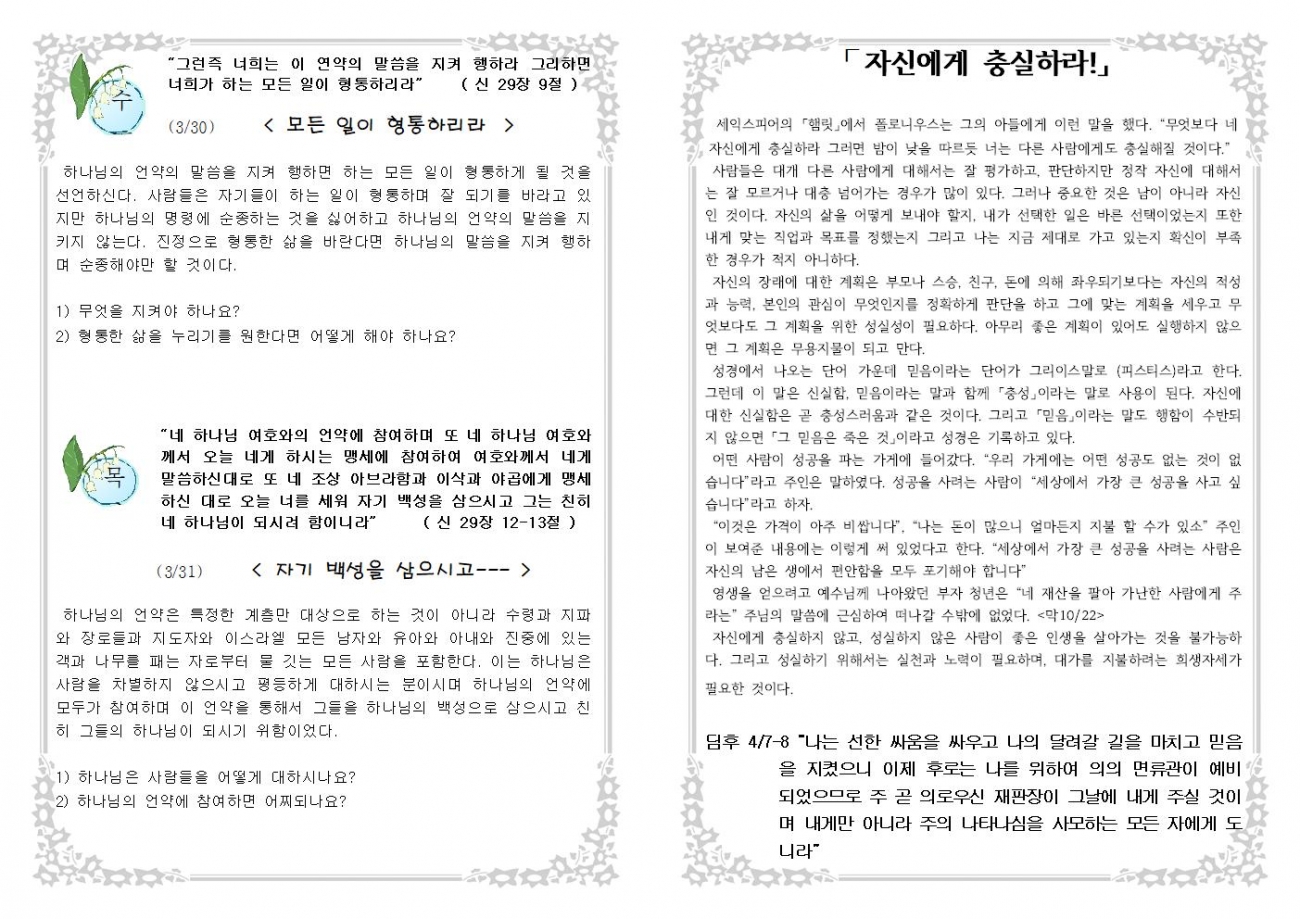 "그런즉 너희는 이 연약의 말씀을 지켜 행하라 그리하면
너희가 하는 모든 일이 형통하리라" ( 신 29장 9절 )
수
(3/30) < 모든 일이 형통하리라 >
하나님의 언약의 말씀을 지켜 행하면 하는 모든 일이 형통하게 될 것을
선언하신다. 사람들은 자기들이 하는 일이 형통하며 잘 되기를 바라고 있
지만 하나님의 명령에 순종하는 것을 싫어하고 하나님의 언약의 말씀을 지
키지 않는다. 진정으로 형통한 삶을 바란다면 하나님의 말씀을 지켜 행하
며 순종해야만 할 것이다.
1) 무엇을 지켜야 하나요?
2) 형통한 삶을 누리기를 원한다면 어떻게 해야 하나요?
"네 하나님 여호와의 언약에 참여하며 또 네 하나님 여호와
께서 오늘 네게 하시는 맹세에 참여하여 여호와께서 네게
말씀하신대로 또 네 조상 아브라함과 이삭과 야곱에게 맹세
하신 대로 오늘 너를 세워 자기 백성을 삼으시고 그는 친히
네 하나님이 되시려 함이니라" ( 신 29장 12-13절 )
목
(3/31) < 자기 백성을 삼으시고--- >
하나님의 언약은 특정한 계층만 대상으로 하는 것이 아니라 수령과 지파
와 장로들과 지도자와 이스라엘 모든 남자와 유아와 아내와 진중에 있는
객과 나무를 패는 자로부터 물 긷는 모든 사람을 포함한다. 이는 하나님은
사람을 차별하지 않으시고 평등하게 대하시는 분이시며 하나님의 언약에
모두가 참여하며 이 언약을 통해서 그들을 하나님의 백성으로 삼으시고 친
히 그들의 하나님이 되시기 위함이었다.
1) 하나님은 사람들을 어떻게 대하시나요?
2) 하나님의 언약에 참여하면 어찌되나요?
「자신에게 충실하라!」
세익스피어의 「햄릿」에서 폴로니우스는 그의 아들에게 이런 말을 했다. "무엇보다 네
자신에게 충실하라 그러면 밤이 낮을 따르듯 너는 다른 사람에게도 충실해질 것이다."
사람들은 대개 다른 사람에게 대해서는 잘 평가하고, 판단하지만 정작 자신에 대해서
는 잘 모르거나 대충 넘어가는 경우가 많이 있다. 그러나 중요한 것은 남이 아니라 자신
인 것이다. 자신의 삶을 어떻게 보내야 할지, 내가 선택한 일은 바른 선택이었는지 또한
내게 맞는 직업과 목표를 정했는지 그리고 나는 지금 제대로 가고 있는지 확신이 부족
한 경우가 적지 아니하다.
자신의 장래에 대한 계획은 부모나 스승, 친구, 돈에 의해 좌우되기보다는 자신의 적성
과 능력, 본인의 관심이 무엇인지를 정확하게 판단을 하고 그에 맞는 계획을 세우고 무
엇보다도 그 계획을 위한 성실성이 필요하다. 아무리 좋은 계획이 있어도 실행하지 않으
면 그 계획은 무용지물이 되고 만다.
성경에서 나오는 단어 가운데 믿음이라는 단어가 그리이스말로 (피스티스)라고 한다.
그런데 이 말은 신실함, 믿음이라는 말과 함께 「충성」이라는 말로 사용이 된다. 자신에
대한 신실함은 곧 충성스러움과 같은 것이다. 그리고 「믿음」이라는 말도 행함이 수반되
지 않으면 「그 믿음은 죽은 것」이라고 성경은 기록하고 있다.
어떤 사람이 성공을 파는 가게에 들어갔다. "우리 가게에는 어떤 성공도 없는 것이 없
습니다"라고 주인은 말하였다. 성공을 사려는 사람이 "세상에서 가장 큰 성공을 사고 싶
습니다"라고 하자.
"이것은 가격이 아주 비쌉니다", "나는 돈이 많으니 얼마든지 지불 할 수가 있소" 주인
이 보여준 내용에는 이렇게 써 있었다고 한다. "세상에서 가장 큰 성공을 사려는 사람은
자신의 남은 생에서 편안함을 모두 포기해야 합니다"
영생을 얻으려고 예수님께 나아왔던 부자 청년은 "네 재산을 팔아 가난한 사람에게 주
라는" 주님의 말씀에 근심하여 떠나갈 수밖에 없었다. <막10/22>
자신에게 충실하지 않고, 성실하지 않은 사람이 좋은 인생을 살아가는 것을 불가능하
다. 그리고 성실하기 위해서는 실천과 노력이 필요하며, 대가를 지불하려는 희생자세가
필요한 것이다.
딤후 4/7-8 "나는 선한 싸움을 싸우고 나의 달려갈 길을 마치고 믿음
을 지켰으니 이제 후로는 나를 위하여 의의 면류관이 예비
되었으므로 주 곧 의로우신 재판장이 그날에 내게 주실 것이
며 내게만 아니라 주의 나타나심을 사모하는 모든 자에게 도
니라"